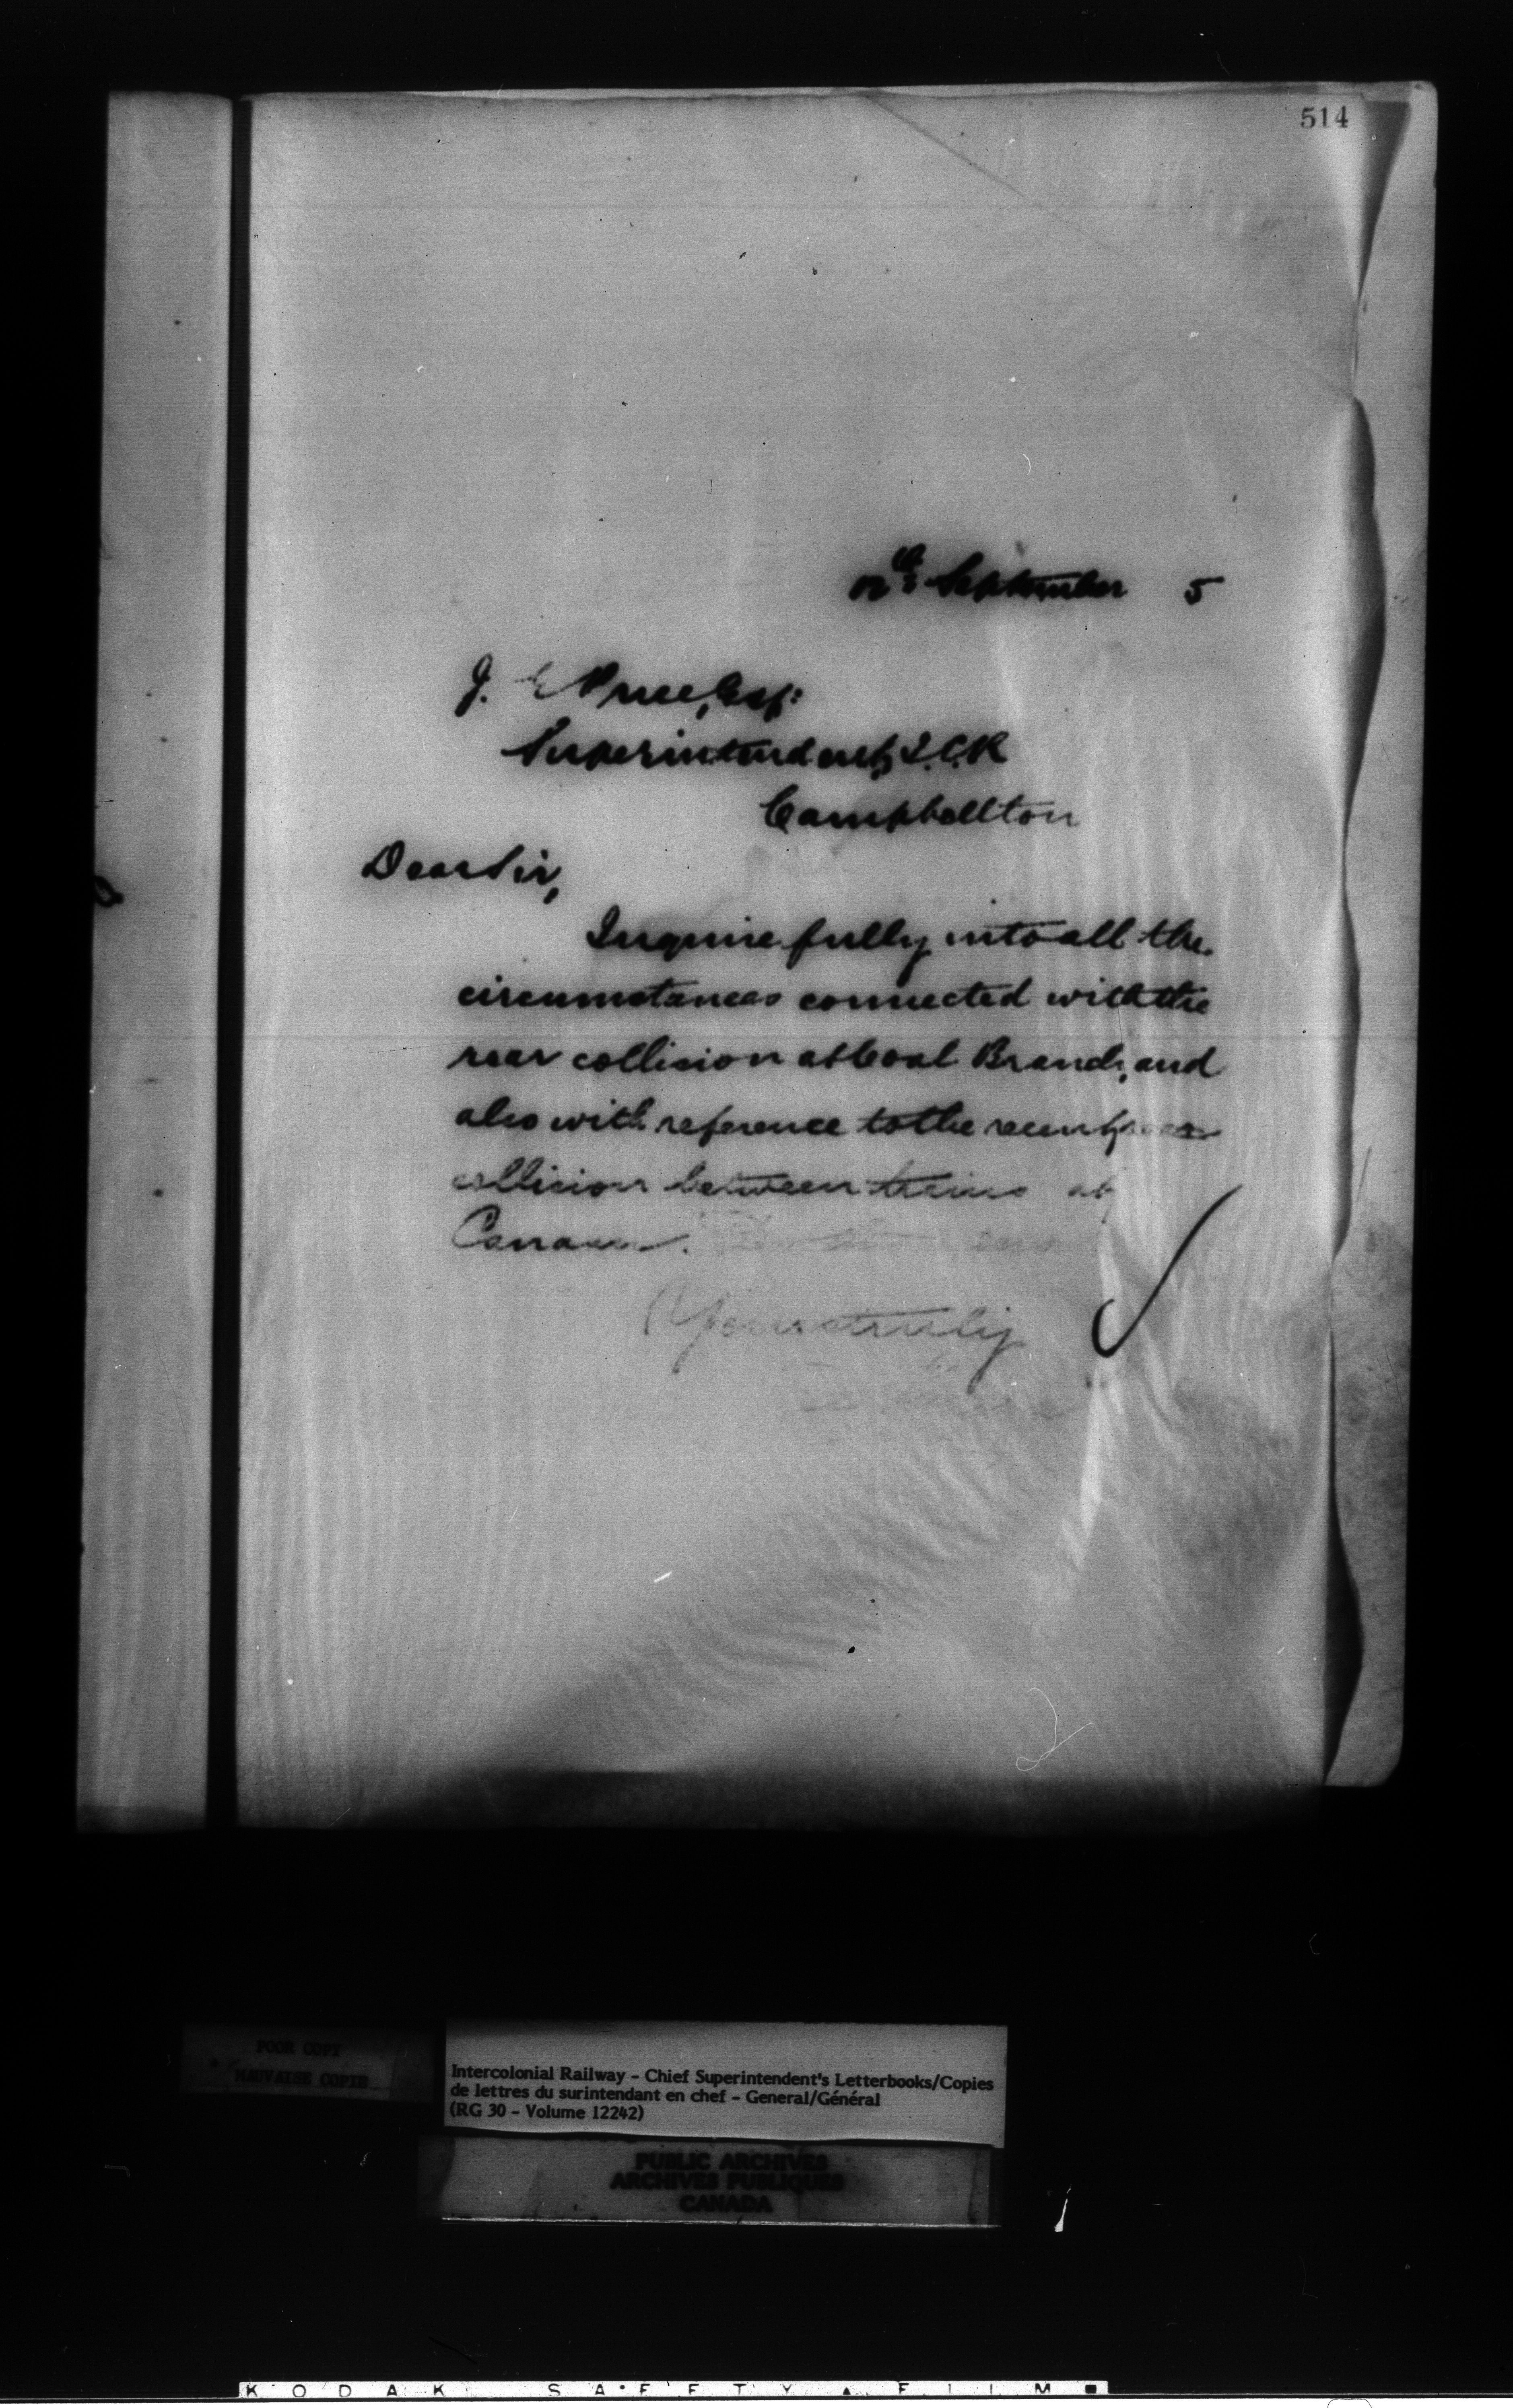 514
th September 5
J. E Price, Esq:
Superintendent, I.C.R
Campbellton
Dear Sir,
Inquire fully into all the
circumstances connected with the
rear collision at Coal Branch, and
also with reference to the recent
collision between trains at
Canaan.
Yours truly
POOR COPY
MAUVAISE COPIE
Intercolonial Railway - Chief Superintendent's Letterbooks/Copies
de lettres du surintendant en chef - General/Général
(RG 30 - Volume 12242)
PUBLIC ARCHIVES
ARCHIVES PUBLIQUES
CANADA
KODAK SAFETY FILM